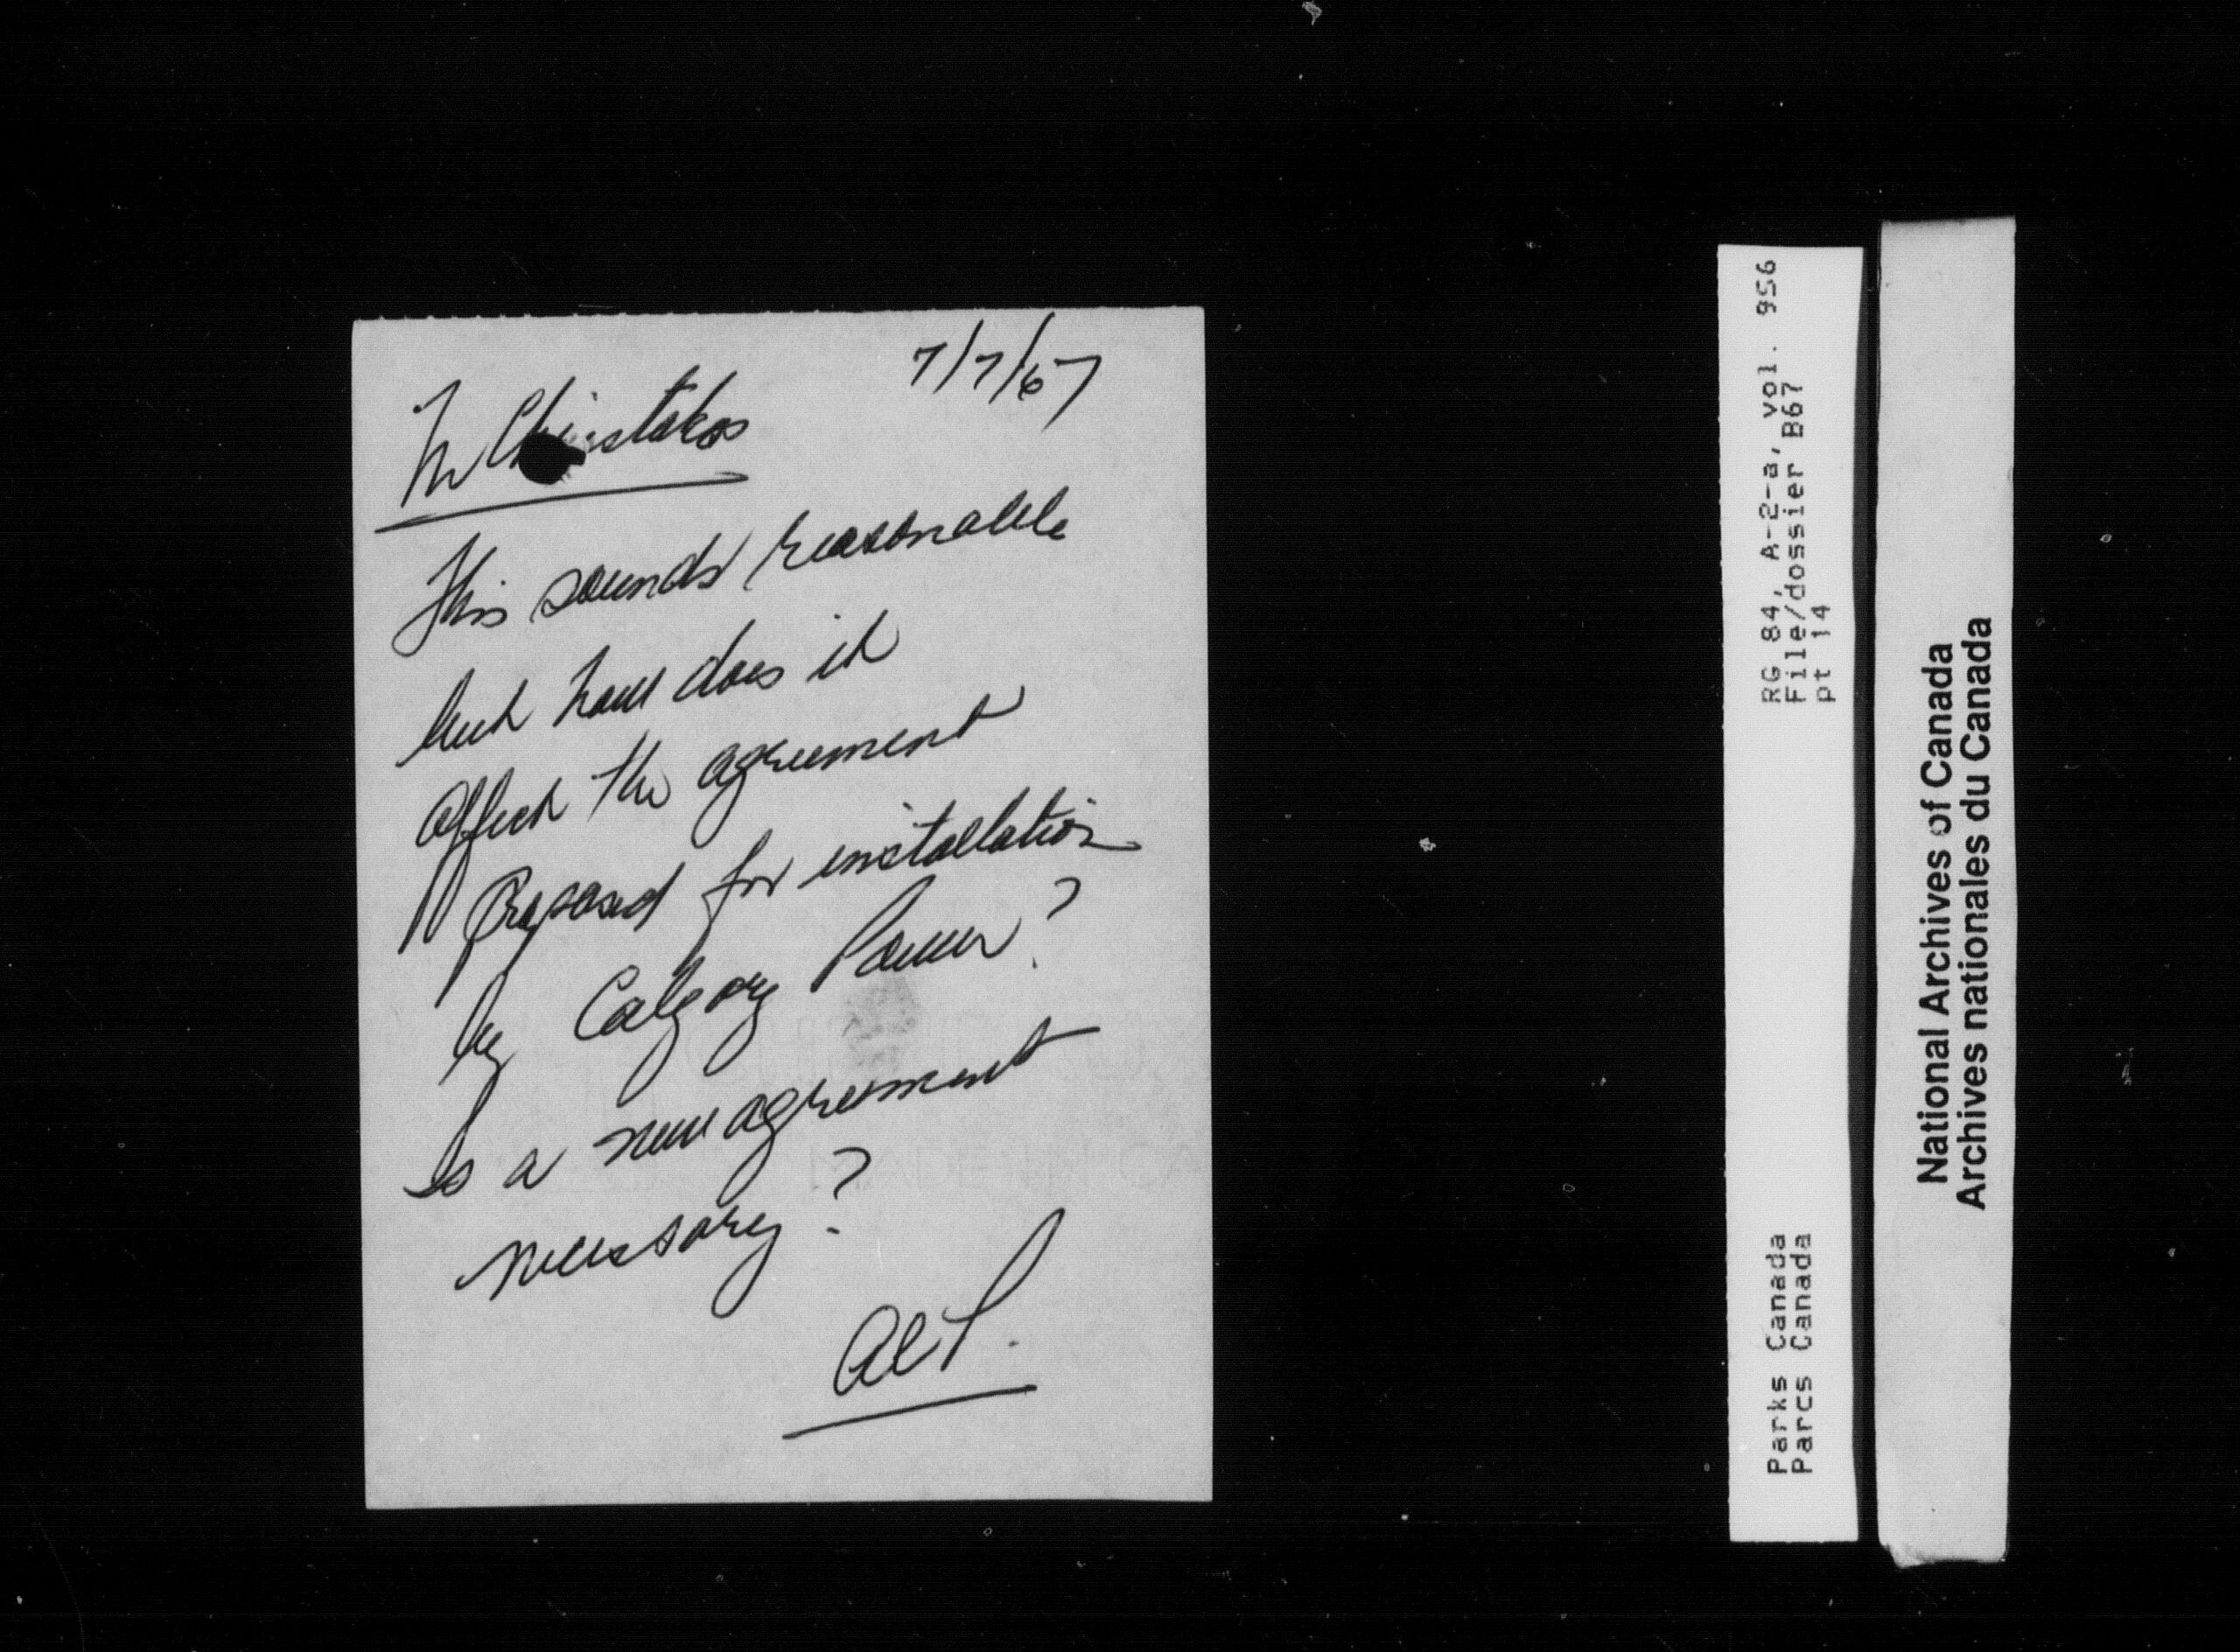 7/7/67
Mr Christakos
This sounds reasonable
but how does it
affect the agreement
proposed for installation
by Calgary Power?
Is a new agreement
necessary?
Al P.
RG 84, A-2-a, vol. 956
File/dossier B67
pt 14
Parks Canada
Parcs Canada
National Archives of Canada
Archives nationales du Canada